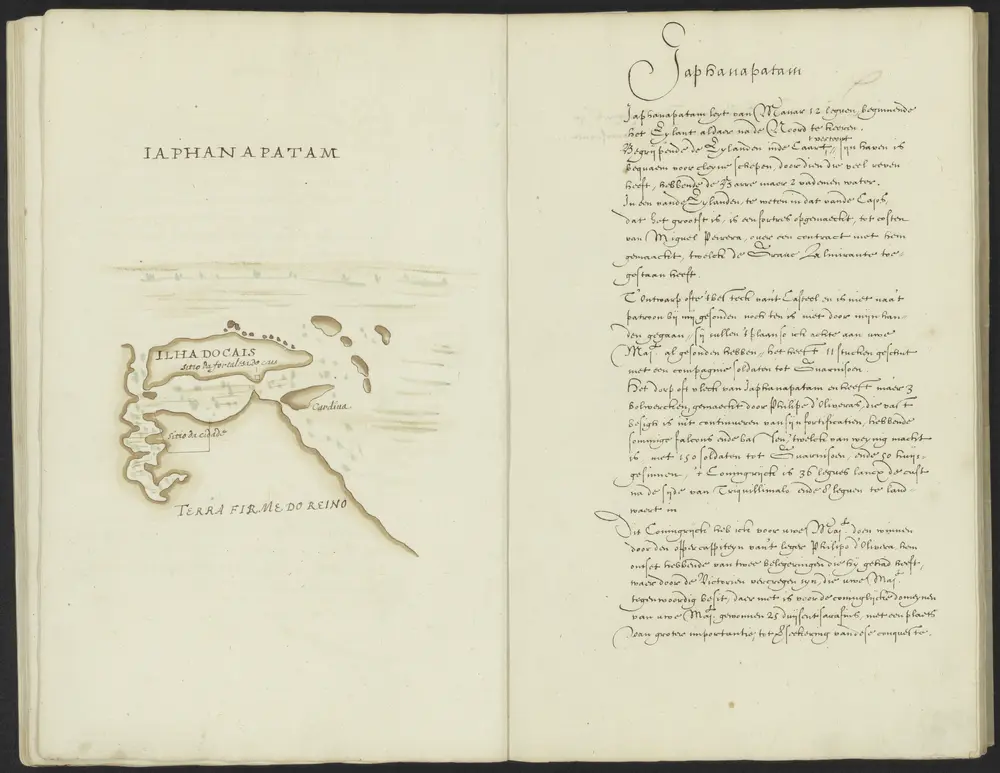 IAPHANAPATAM
ILHA DO CAIS
sitio da fortalesa do cais
Cardiva
sitio da cidade
TERRA FIRME DO REINO
Japhanapatam
Japhanapatam leyt van Manar 12 leguen, beginnende
het Eylant aldaer na de Noord te keeren.
Begrijpende de Eylanden inde Caart vertoont, sijn haven is
bequaem voor cleyne schepen, door dien die veel reven
heeft, hebbende de Barre maer 2 vademen water.
In een vande Eylanden, te weten in dat vande Cajos,
dat het grootst is, is een fortres opgemaeckt, tot costen
van Miguel Pereera, over een contract met hem
gemaeckt, twelck de Grave Almirante toe-
gestaan heeft.
T'Ontwarp ofte 'tbes teck van't Casteel en is niet naa't
patroon bij mij gesonden noch ten is niet door mijn han-
den gegaan, sij sullen 't plaanso ick achte aan uwe
Maj.t al gesonden hebben, het heeft 11 stucken geschut
met een compagnie soldaten tot Guarnisoen.
Het dorp oft vleck van Japhanapatam en heeft maer 3
bolwercken, gemaeckt door Philipe d'Oliveras, die vast
besigh is int continueren van sijn fortificatien, hebbende
sommige falcons ende bas sen, twelck van weynig macht
is met 150 soldaten tot Guarnisoen, ende 50 huijs-
gesinnen, 't Coningrijck is 36 legues lancx de cust
na de sijde van Triquillimalo ende 8 leguen te land-
waert in
Dit Coningrijck heb ick voor uwe Maj.t doen winnen
door den opper cappiteyn van't leger Philipo d'Olivera, hem
ontset hebbende van twee belegeringen die hij gehad heeft,
waer door de Victorien vercregen sijn, die uwe Maj.t
tegenwoordig besit, daer met is voor de coninglijcke domeynen
van uwe Maj.t gewonnen 25 duijsent sarafins, met een plaets
van groter importantie, tot verseekering van dese conqueste.